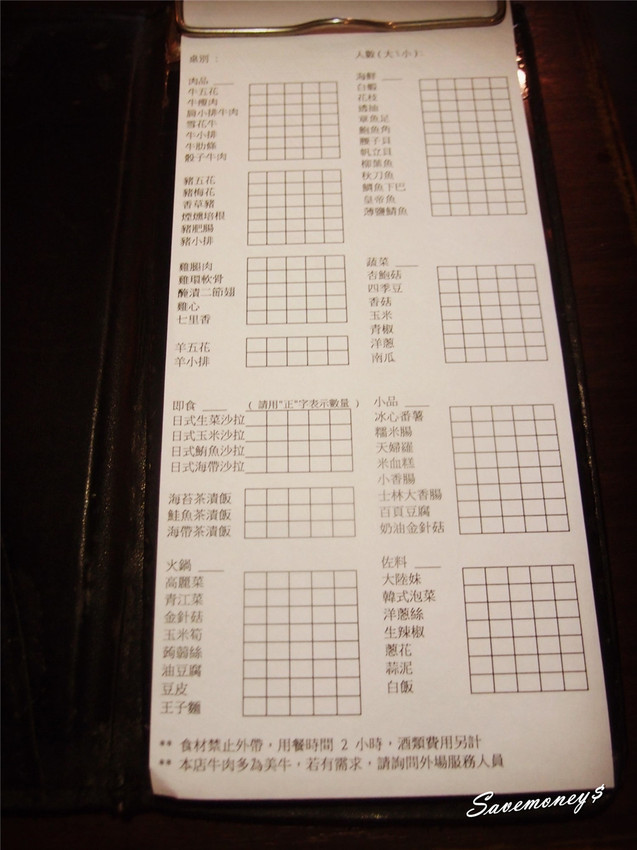 桌別：
人數(大\小)：
肉品
牛五花
牛瘦肉
肩小排牛肉
雪花牛
牛小排
牛肋條
骰子牛肉
豬五花
豬梅花
香草豬
煙燻培根
豬肥腸
豬小排
雞腿肉
雞環軟骨
醃漬二節翅
雞心
七里香
羊五花
羊小排
即食
( 請用"正"字表示數量 )
日式生菜沙拉
日式玉米沙拉
日式鮪魚沙拉
日式海帶沙拉
海苔茶漬飯
鮭魚茶漬飯
海帶茶漬飯
火鍋
高麗菜
青江菜
金針菇
玉米筍
蒟蒻絲
油豆腐
豆皮
王子麵
海鮮
白蝦
花枝
透抽
章魚足
鮑魚角
腰子貝
帆立貝
柳葉魚
秋刀魚
鯛魚下巴
皇帝魚
薄鹽鯖魚
蔬菜
杏鮑菇
四季豆
香菇
玉米
青椒
洋蔥
南瓜
小品
冰心番薯
糯米腸
天婦羅
米血糕
小香腸
士林大香腸
百頁豆腐
奶油金針菇
佐料
大陸妹
韓式泡菜
洋蔥絲
生辣椒
蔥花
蒜泥
白飯
** 食材禁止外帶，用餐時間 2 小時，酒類費用另計
** 本店牛肉多為美牛，若有需求，請詢問外場服務人員
Savemoney$